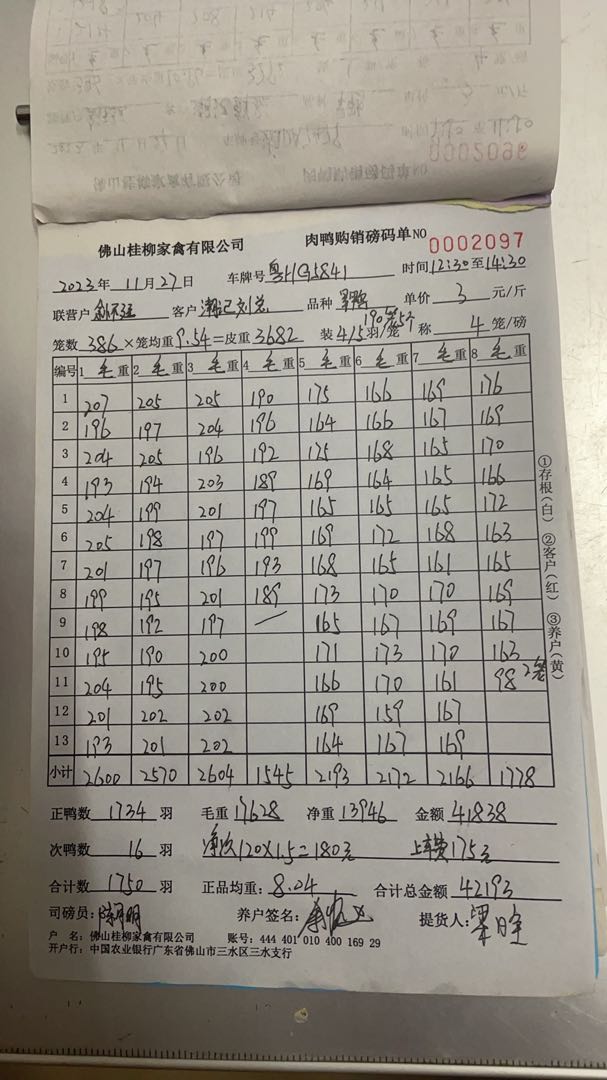 0002096
佛山桂柳家禽有限公司 肉鸭购销磅码单 NO 0002097
2023年 11月27日 车牌号 粤H G5841 时间 12:30 至 14:30
联营户 客户 品种 单价 3 元/斤
笼数 386 ×笼均重 9.54 =皮重 3682 装 4/5 羽/笼 称 4 笼/磅
编号 1 毛重 2 毛重 3 毛重 4 毛重 5 毛重 6 毛重 7 毛重 8 毛重
1 207 205 205 190 175 166 169 176
2 196 197 204 196 164 166 167 169
3 204 205 196 192 175 168 165 170
4 193 194 203 189 169 164 165 166
5 204 199 201 197 165 165 165 172
6 205 198 197 199 169 172 168 163
7 201 197 196 193 168 165 161 165
8 199 195 201 189 173 170 170 169
9 198 192 197 165 167 169 167
10 195 190 200 171 173 170 163
11 204 195 200 166 170 161 98 2笼
12 201 202 202 169 159 167
13 193 201 202 164 167 169
小计 2600 2570 2604 1545 2193 2172 2166 1778
①存根(白) ②客户(红) ③养户(黄)
正鸭数 1734 羽 毛重 17628 净重 13946 金额 41838
次鸭数 16 羽 净次120×1.5=180元 上车费175元
合计数 1750 羽 正品均重: 8.04 合计总金额 42193
司磅员: 养户签名: 提货人:
户 名: 佛山桂柳家禽有限公司 账号: 444 401 010 400 169 29
开户行: 中国农业银行广东省佛山市三水区三水支行